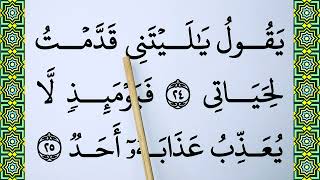 يَقُولُ يَٰلَيۡتَنِي قَدَّمۡتُ
لِحَيَاتِي ٢٤ فَيَوۡمَئِذٖ لَّا
يُعَذِّبُ عَذَابَهُۥٓ أَحَدٞ ٢٥